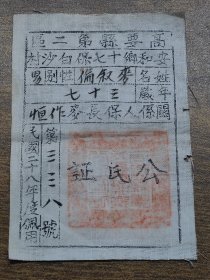 高要縣第二區
安和鄉十七保白沙村
姓名麥叙倫性別男
年歲七十三
關係人保長麥作恒
公民証
第三三八號
民國二十八年度佩用